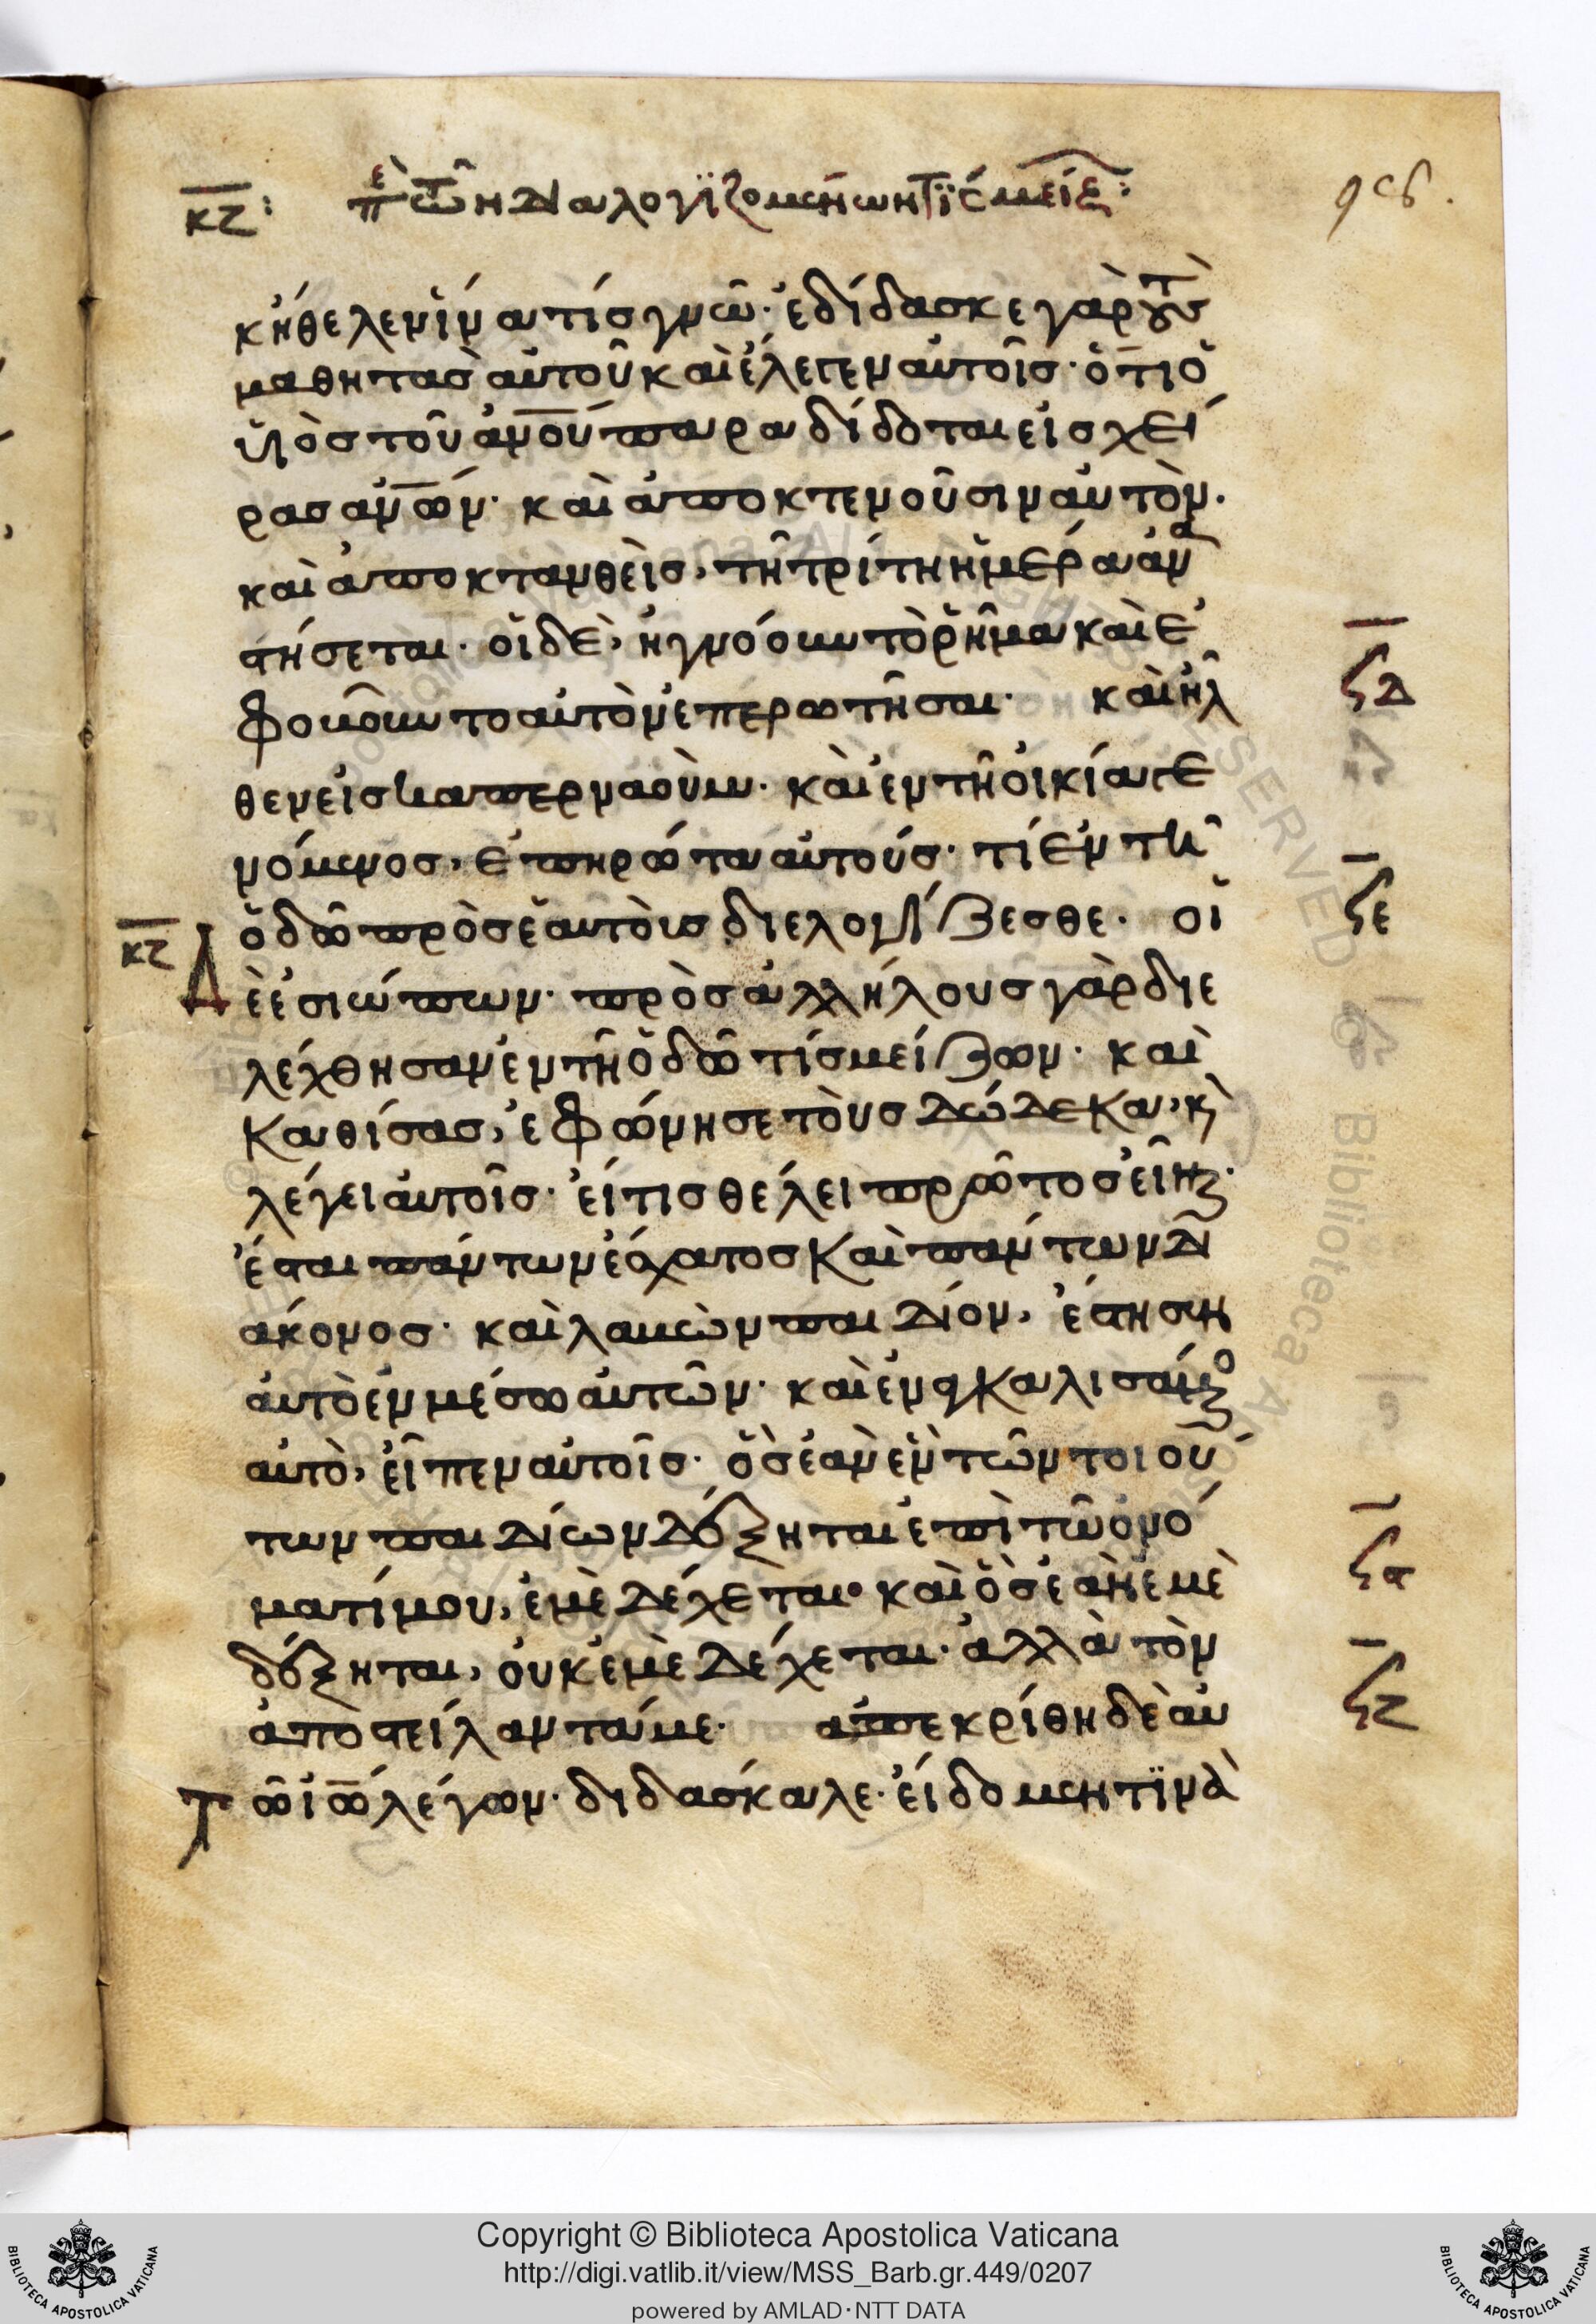 κζ: πὲ τῶν διαλογϊζομένων τίς μείζ:
κ ἤθελεν ἵνα τίσ γνῶ· ἐδίδασκε γὰρ τοὺσ
μαθητὰσ αὐτοῦ καὶ ἔλεγεν αὐτοῖσ· ὅτι ὁ
υἱὸσ τοῦ ἀνου παραδίδοται εἰσ χεῖ
ρασ ἀνων· καὶ ἀποκτενοῦσιν αὐτὸν.
καὶ ἀποκτανθεὶσ, τῆ τρίτη ἡμέρα ἀνα
στήσεται· οἱ δὲ, ἠγνόουν τὸ ῥῆμα καὶ ἐ
φοβοῦντο αὐτὸν ἐπερωτῆσαι· καὶ ἦλ
θεν εἰσ καπερναούμ· καὶ ἐν τῆ οἰκία γε
νόμενοσ, ἐπηρώτα αὐτούσ· τί ἐν τῆ
ὁδῶ πρὸσ ἑαυτοὺσ διελογίζεσθε· οἱ
κζ Δ ὲ ἐσιώπων· πρὸσ ἀλλήλουσ γὰρ διε
λέχθησαν ἐν τῆ ὁδῶ τίσ μείζων· καὶ
καθίσασ, ἐφώνησε τοὺσ δώδεκα, κὶ
λέγει αὐτοῖσ· εἴ τισ θέλει πρῶτοσ εἶναι·
ἔσται πάντων ἔσχατοσ καὶ πάντων δι
άκονοσ· καὶ λαβὼν παιδίον, ἔστησεν
αὐτὸ ἐν μέσω αὐτῶν· καὶ ἐναγκαλισάμενοσ
αὐτὸ, εἶπεν αὐτοῖσ· ὃσ ἐὰν ἓν τῶν τοιού
των παιδίων δέξηται ἐπὶ τῶ ὀνό
ματί μου, ἐμὲ δέχεται· καὶ ὃσ ἐὰν ἐμὲ
δέξηται, οὐκ ἐμὲ δέχεται· ἀλλὰ τὸν
ἀποστείλαντά με· ἀπεκρίθη δὲ αὐ
Τ ῶ ἰω λέγων· διδάσκαλε· εἴδομέν τϊνὰ
ϟδ
ϟε
ϟϛ
ϟζ
Copyright © Biblioteca Apostolica Vaticana
http://digi.vatlib.it/view/MSS_Barb.gr.449/0207
powered by AMLAD·NTT DATA
BIBLIOTECA APOSTOLICA VATICANA
BIBLIOTECA APOSTOLICA VATICANA